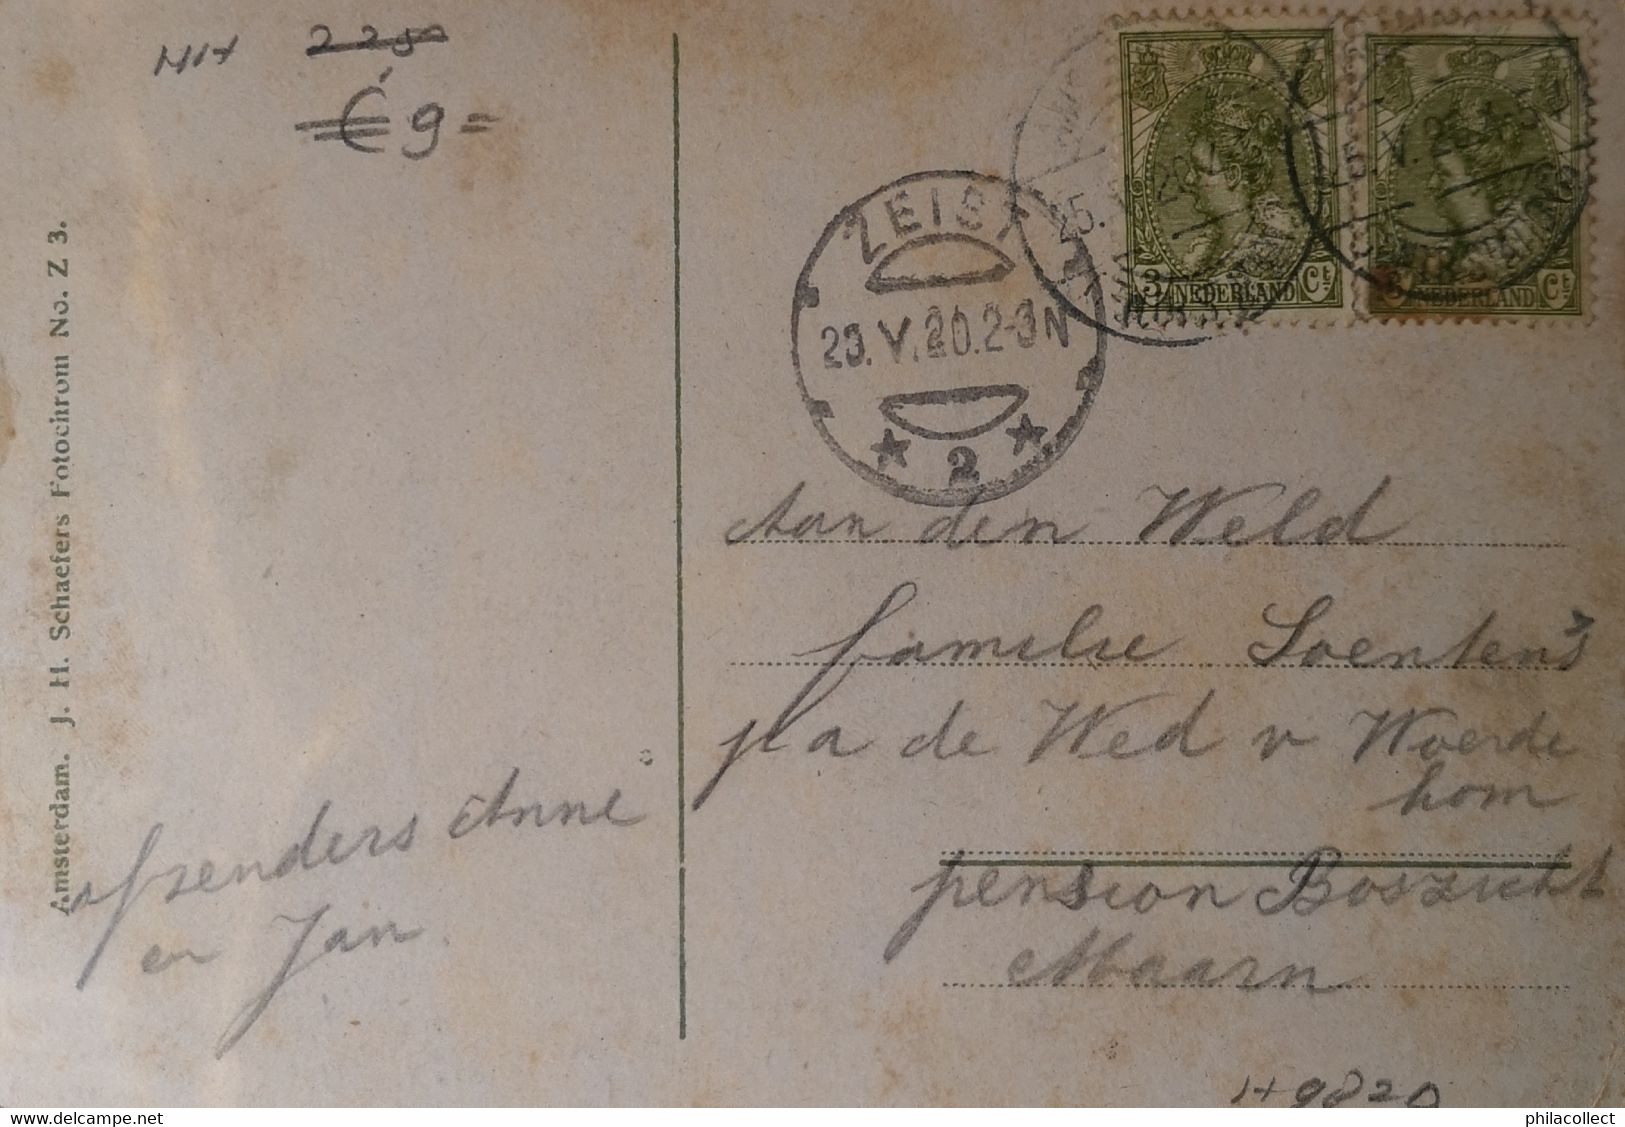 2250
€ 9=
Amsterdam. J. H. Schaefers Fotochrom No. Z 3.
ZEIST
23.V.20.2-3N
2
3 NEDERLAND Ct
3 NEDERLAND Ct
Aan den Weld
familie Soenten's
p/a de Wed v Woerde
kom
pension Boszicht
Maarn
afzenders Anne
en Jan.
H9820
philacollect